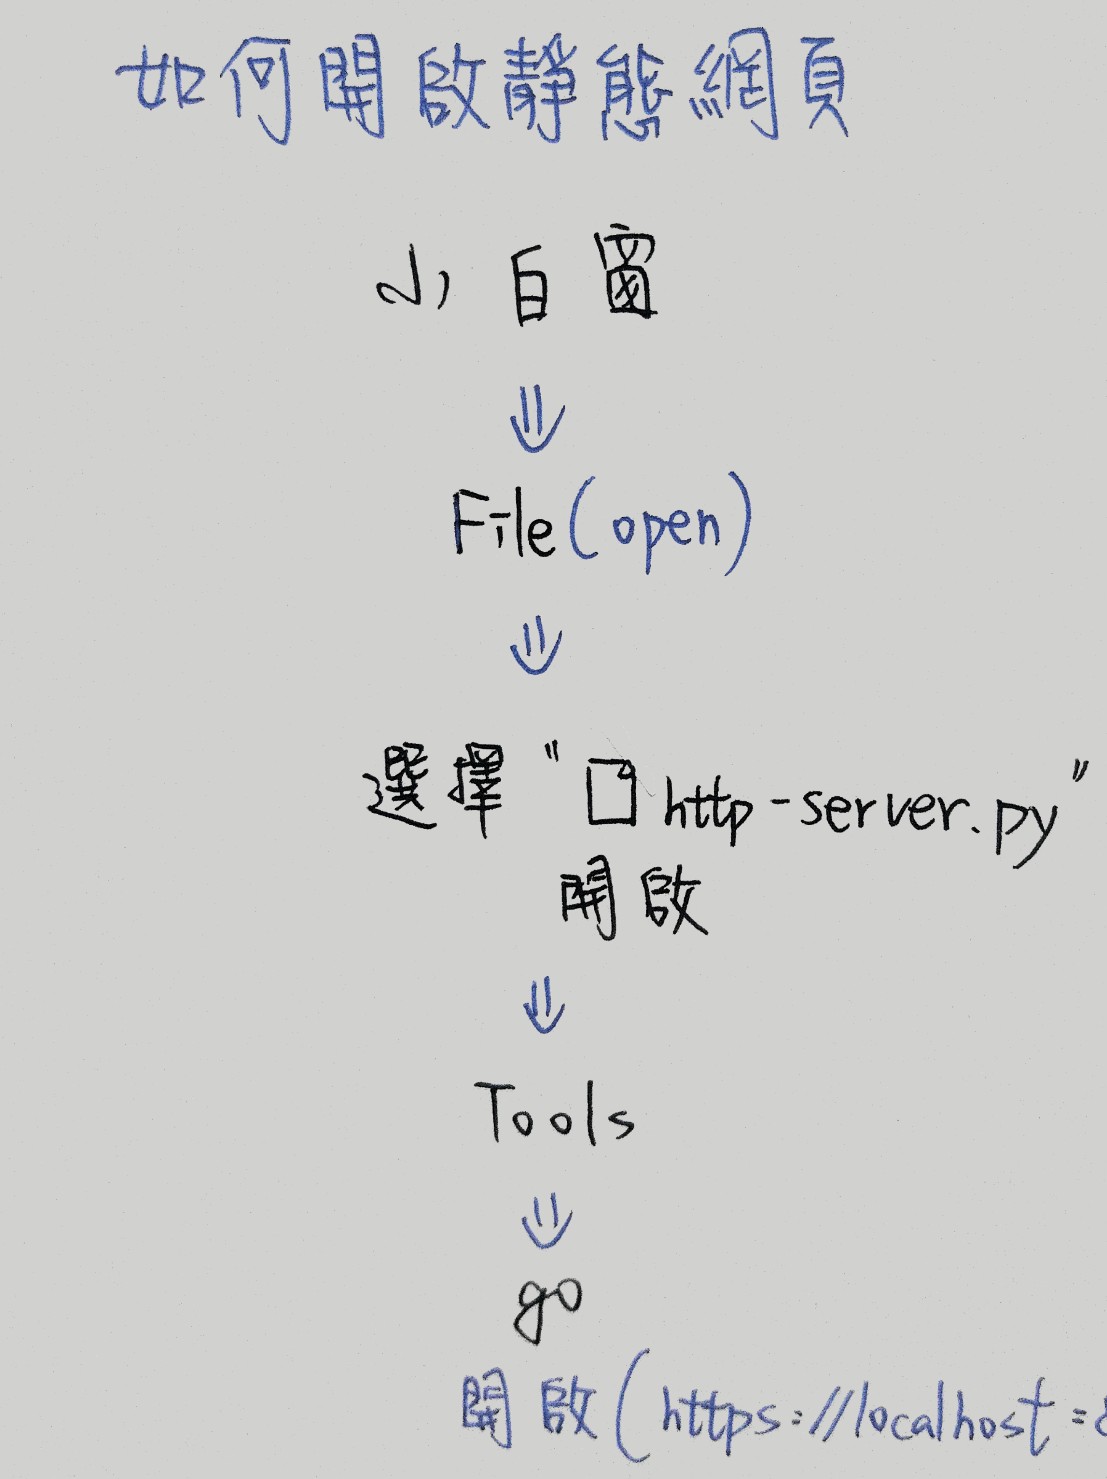 如何開啟靜態網頁
小白窗
⇓
File(open)
⇓
選擇 "http-server.py"
開啟
⇓
Tools
⇓
go
開啟(https://localhost: